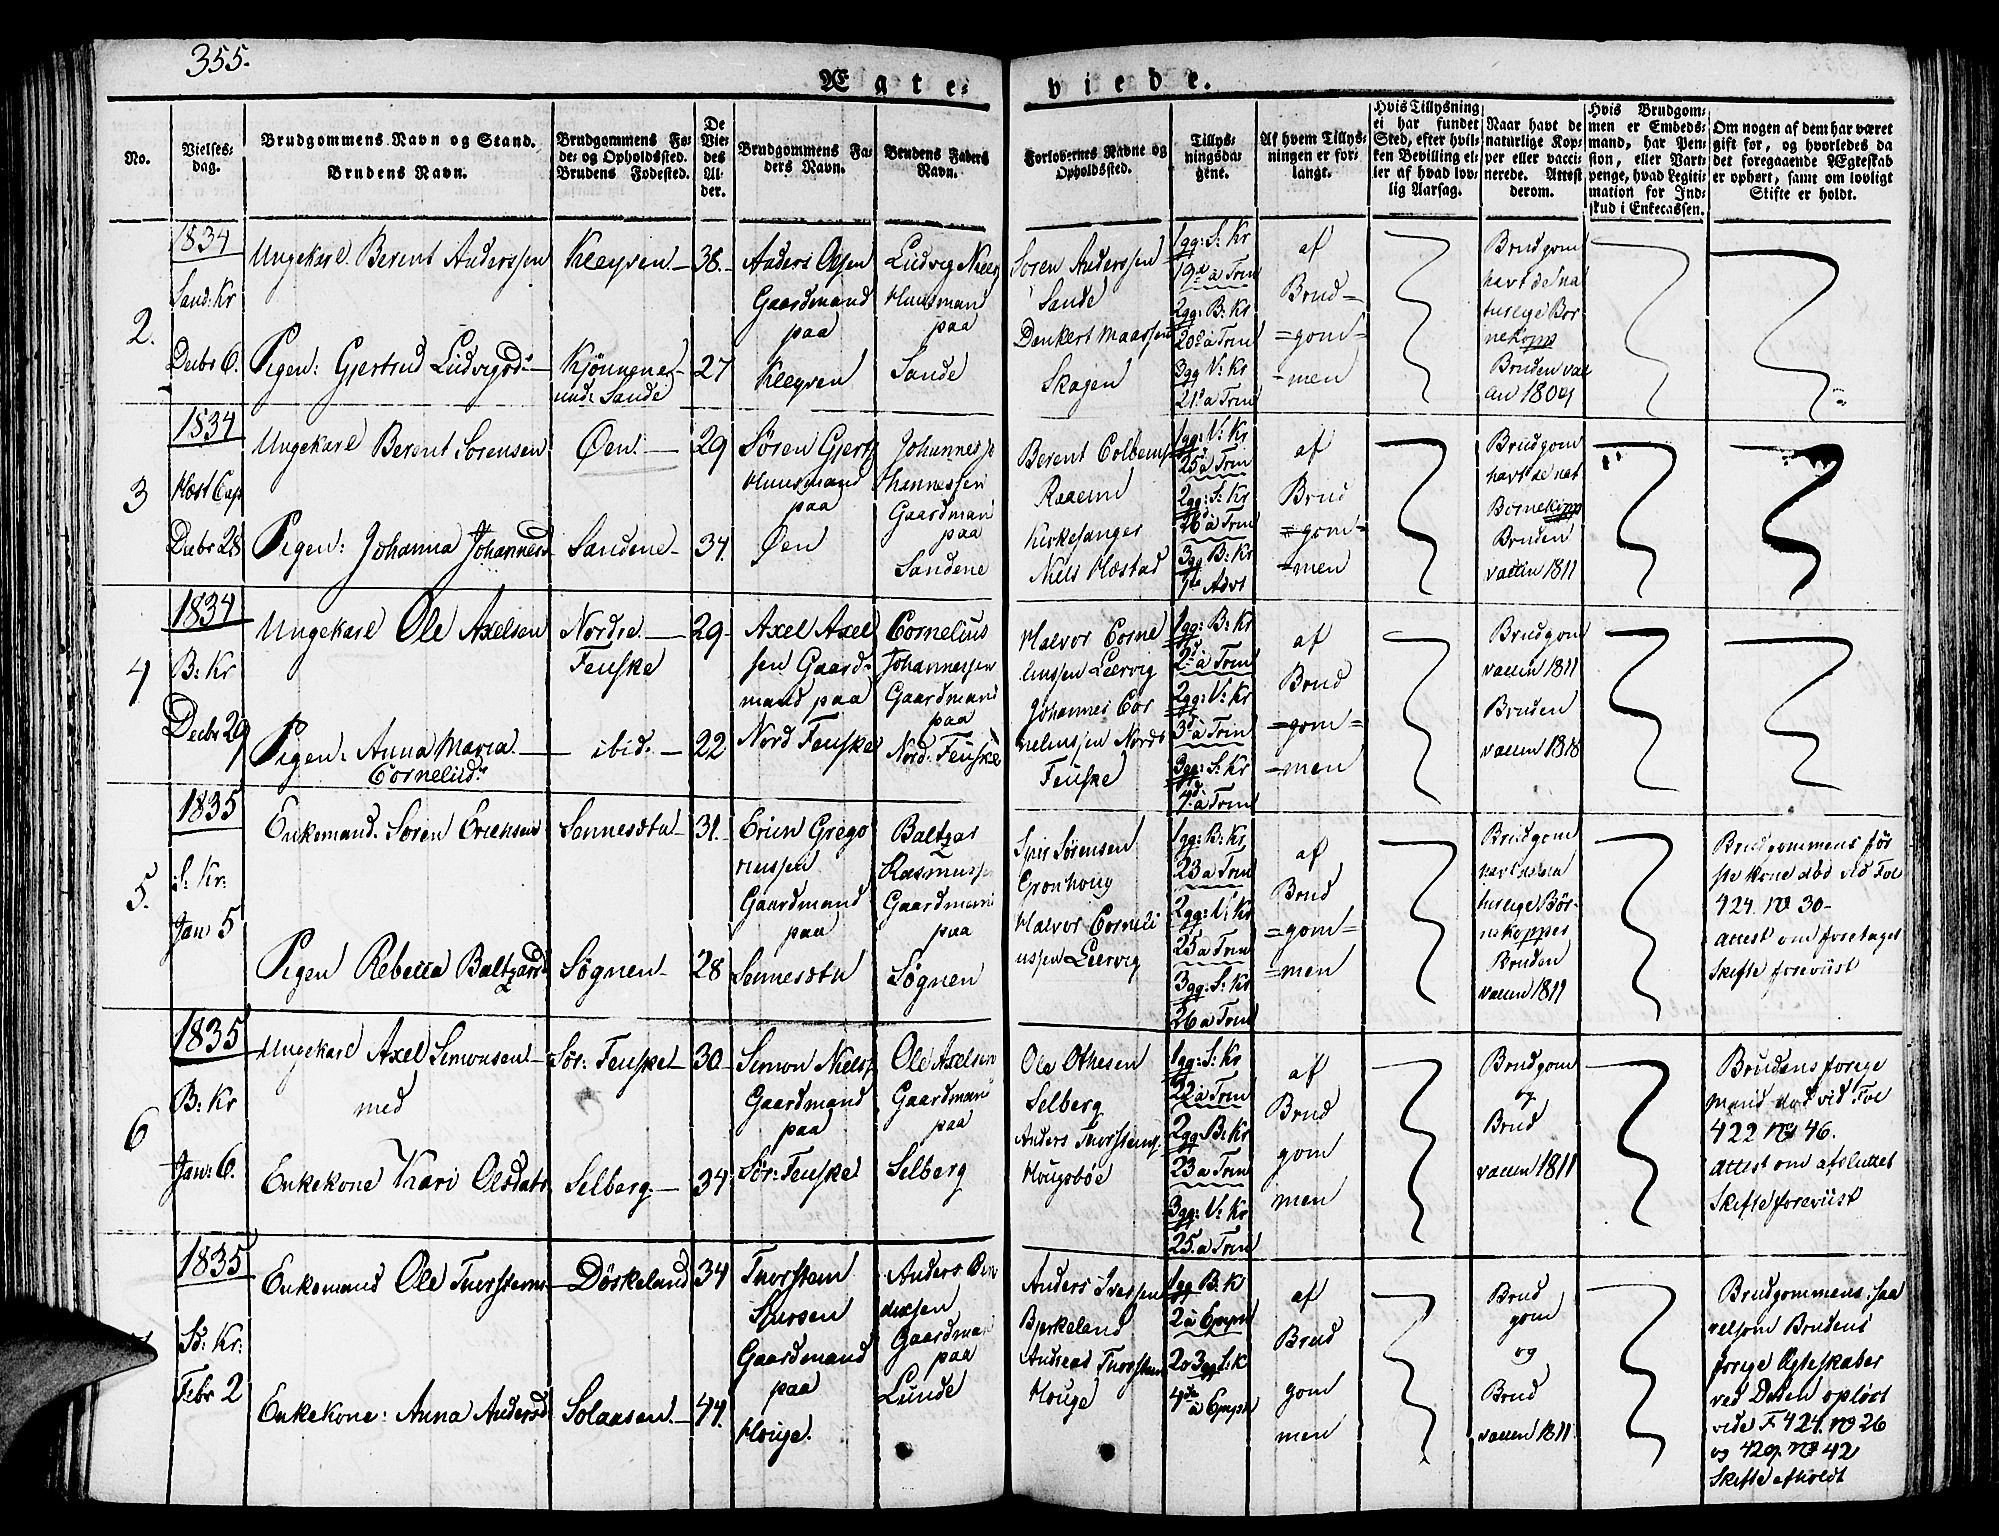 355.
Ægte-
viede.
No.
Vielses-
dag.
Brudgommens Navn og Stand.
Brudens Navn.
Brudgommens Fø-
de- og Opholdssted.
Brudens Fødested.
De
Vie-
des
Al-
der.
Brudgommens Fa-
ders Navn.
Brudens Faders
Navn.
Forlovernes Navne og
Opholdssted.
Tillys-
ningsda-
gene.
Af hvem Tillys-
ningen er for-
langt.
Hvis Tillysning
ei har fundet
Sted, efter hvil-
ken Bevilling el-
ler af hvad lov-
lig Aarsag.
Naar havt de
naturlige Kop-
per eller vacci-
nerede. Attest
derom.
Hvis Brudgom-
men er Embeds-
mand, har Pen-
sion, eller Vart-
penge, hvad Legiti-
mation for Ind-
skud i Enkecassen.
Om nogen af dem har været
gift før, og hvorledes da
det foregaaende Ægteskab
er ophørt, samt om lovligt
Skifte er holdt.
2.
1834
Sand: Kr
Decbr 6.
Ungekarl Berent Anderssen
Pigen: Gjertrud Ludvigsd
Kleyven
Kjønnenes
und: Sande
38.
27
Anders Olsen
Gaardmand
paa
Kleyven
Ludvig Niels
Huusmand
paa
Sande
Søren Anderssen
Sande
Denkert Maassen
Skagen
1gg: S: Kr
19d a Trin
2gg: B: Kr
20d a Trin
3gg V: Kr
21d a Trin
af
Brud=
=gom=
=men
Brudgom
havt de na
turlige Bør
nekopp
Bruden vac
an 1809
3
1834
Høst Cap
Decbr 28
Ungekarl Berent Sørensen
Pigen: Johanna Johannesd
Øen
Sandene
29
34.
Søren Gjerts
Huusmand
paa
Øen
Johannes Jo
hannessen
Gaardman
paa
Sandene
Berent Colbens
Raaeim
Kirkesanger
Niels Hæstad
1gg: V: Kr
25d a Trin
2gg: S: Kr
26 a Trin
3gg B: Kr
1ste Advt
af
Brud
=gom=
=men
Brudgom
havt de nat
Børnekopp
Bruden
vaccin 1811
4
1834
B: Kr
Decbr 29
Ungekarl Ole Axelsen
Pigen: Anna Maria
Cornelisd.
Nordre
Fenske
ibid.
29
22
Axel Axel
sen Gaard-
mand paa
Nord Fenske
Cornelius
Johannessen
Gaardmand
paa
Nord. Fenske
Halvor Corne
liussen Leervig
Johannes Cor
neliussen Nordr
Fenske
1gg: B: Kr
2d a Trin
2gg: V: Kr
3d a Trin
3gg: S: Kr
4d a Trin
af
Brud
=gom=
=men
Brudgom
vaccin 1811
Bruden
vaccin 1818
5.
1835
S: Kr:
Jan 5
Enkemand. Søren Erichsen
Pigen Rebecca Baltzarsd
Sennesstu
Søgnen
31.
28
Erich Grego
riussen
Gaardmand
paa
Sennesstu
Baltzar
Rasmuss
Gaardman
paa
Søgnen
Sørensen
Grønhoug
Halvor Corneli
ussen Leervig
1gg: B: Kr
23 a Trin
2gg: V: Kr
25 a Trin
3gg: S: Kr
26 a Trin
af
Brud
=gom=
=men
Brudgom
havt de na
turlige Bør-
nekopper
Bruden
vaccin 1811
Brudgommens før
ste kone død vid Fol
424. No 30-
Attest om foretaget
Skifte foreviist
6
1835
B: Kr
Jan: 6.
Ungekarl Axel Simonsen
med
Enkekone Kari Olsdatr
Sør: Fenske
Selberg
30
34
Simon Niels
Gaardmand
paa
Sør: Fenske
Ole Axelsen
Gaardman
paa
Selberg
Ole Othesen
Selberg
Anders Thorstens
Hougsbøe
1gg: S: Kr
22 a Trin
2gg: B: Kr
23 a Trin
3gg: V: Kr
25. a Trin
af
Brud
gom
men
Brudgom
og
Brud
vaccin 1811
Brudens forige
Mand død vid Fol
422 No 46.
Attest om afsluttet
Skifte foreviist
1835
Sd: Kr:
Febr 2
Enkemand Ole Thorstens
Enkekone: Anna Andersd
Døskeland
Solaasen
34
44.
Thorsten
Gaardmand
paa
Houge.
Anders Ben
dixsen
Gaardman
paa
Lunde
Anders Iverssen
Bjerkeland
Andreas Thorsten
Houge
1gg B. Kr
2 a Epiph
2o 3gg S. K
4de a Epiph
af
Brud
gom
men
Brud
gom
og
Brud
vaccin 1811
Brudgommens, saa
velsom Brudens
forige Ægteskaber
ved Døden opløst
vide F 424. No 26
og 429. No 42
Skifte afholdt